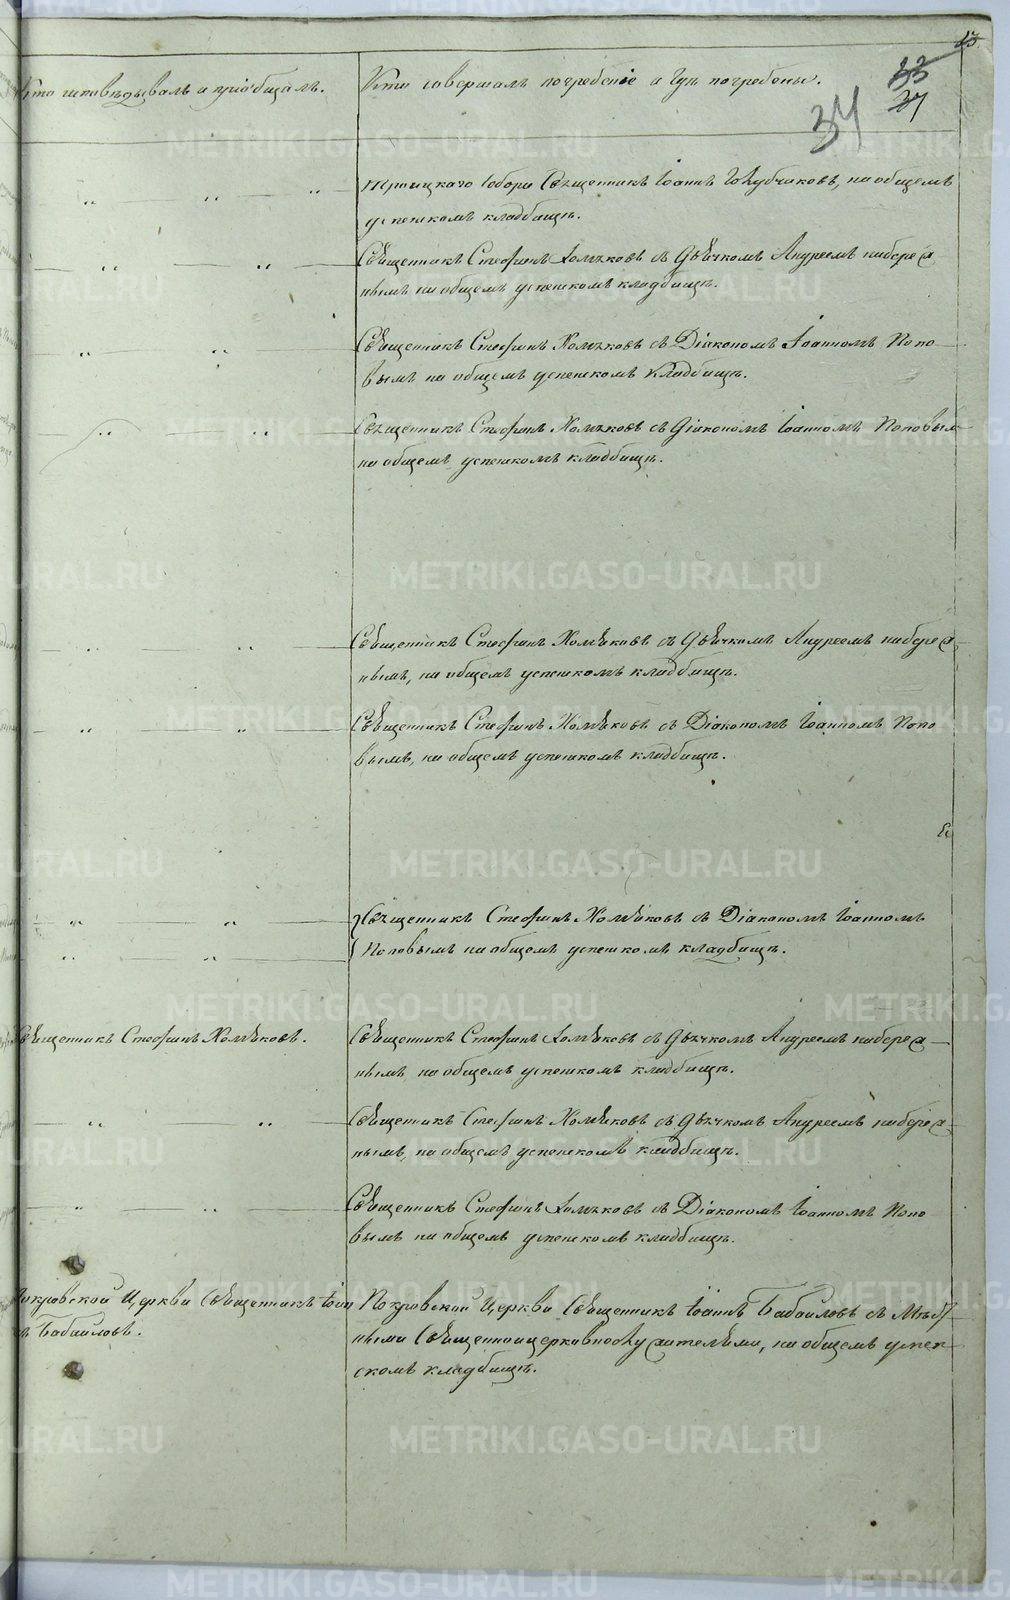 13
33
37
34
Кто исповѣдывалъ и пріобщалъ.
Кто совершалъ погребеніе и гдѣ погребены.
Троицкаго Собора Священникъ Іоаннъ Голубчиковъ, на общемъ
успенскомъ кладбищѣ.
Священникъ Стефанъ Хомяковъ съ Дьячкомъ Андреемъ
нымъ на общемъ успенскомъ кладбищѣ.
Священникъ Стефанъ Хомяковъ съ Діакономъ Іоанномъ Попо
вымъ на общемъ успенскомъ кладбищѣ.
Священникъ Стефанъ Хомяковъ съ Діакономъ Іоанномъ Поповым
на общемъ успенскомъ кладбищѣ.
Священникъ Стефанъ Хомяковъ съ Дьячкомъ Андреемъ
нымъ, на общемъ успенскомъ кладбищѣ.
Священникъ Стефанъ Хомяковъ съ Діакономъ Іоанномъ Попо
вымъ, на общемъ успенскомъ кладбищѣ.
Священникъ Стефанъ Хомяковъ съ Діакономъ Іоанномъ
Поповымъ на общемъ успенскомъ кладбищѣ.
Священникъ Стефанъ Хомяковъ.
Священникъ Стефанъ Хомяковъ съ Дьячкомъ Андреемъ
нымъ на общемъ успенскомъ кладбищѣ.
Священникъ Стефанъ Хомяковъ съ Дьячкомъ Андреемъ
нымъ, на общемъ успенскомъ кладбищѣ.
Священникъ Стефанъ Хомяковъ съ Діакономъ Іоанномъ Попо
вымъ на общемъ успенскомъ кладбищѣ.
Покровской Церкви Священникъ Іоан
нъ Бабайловъ.
Покровской Церкви Священникъ Іоаннъ Бабайловъ съ
ными Священноцерковнослужителями, на общемъ успен
скомъ кладбищѣ.
METRIKI.GASO-URAL.RU